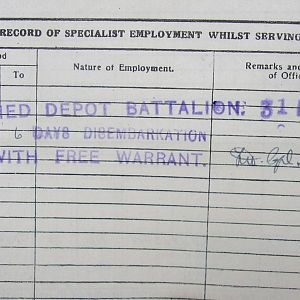 RECORD OF SPECIALIST EMPLOYMENT WHILST SERVING
To
Nature of Employment.
Remarks and
of Offic
IED DEPOT BATTALION. 311
6 DAYS DISEMBARKATION
WITH FREE WARRANT.